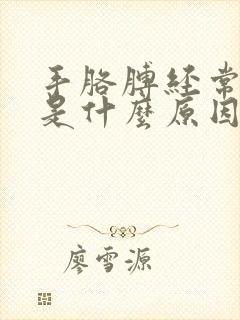 手胳膊经常
是什麼原因
廖雪源